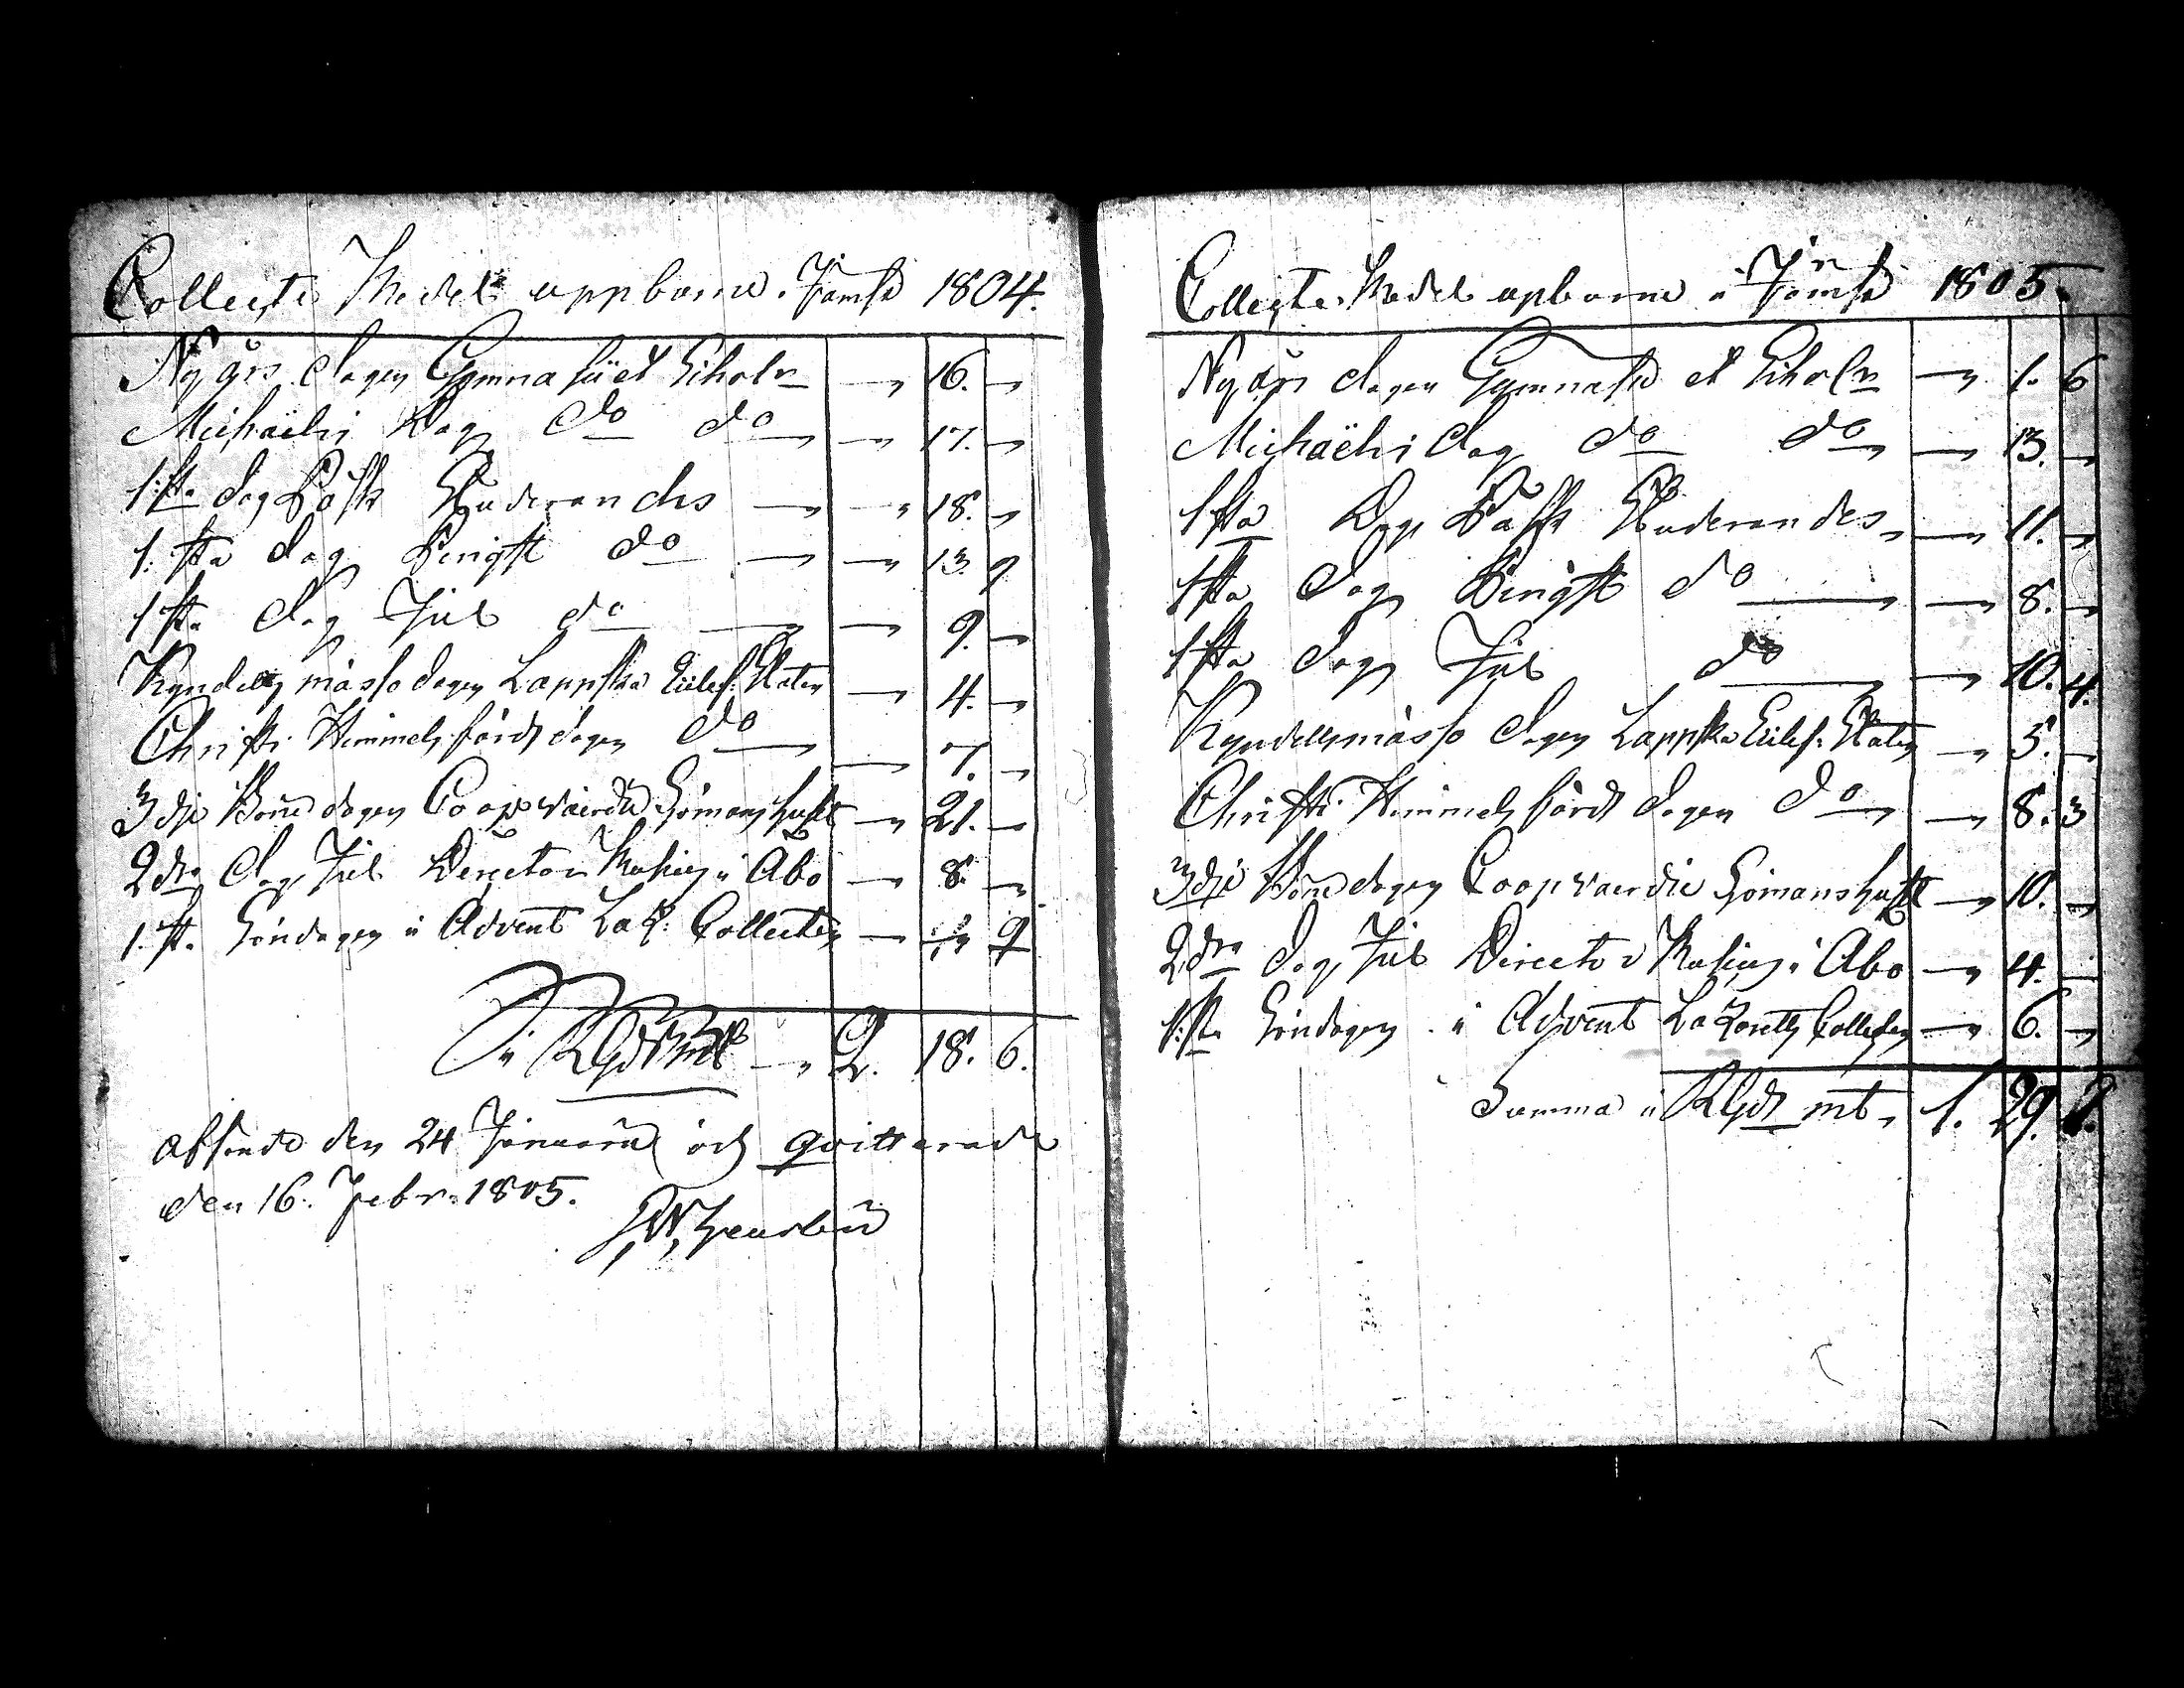 Collect Medel uppburne i Jämsä 1804.
Nyårs dagen Gymnasii et Scholæ — 16. —
Michaëlis Dag do do — 17. —
1:sta dag Påsk Studerandes — — 18. —
1:sta dag Pingst do — — 13. 9
1sta dag Jul do — — 9. —
Kyndelsmässo dagen Lappska Eccles: Staten — 4. —
Christi Himmelsfärds dagen do — 7. —
3dje Böne dagen Coopvaerdie Sjömanshuset — 21. —
2dra dag Jul Director i Åbo — 8. —
1:sta Söndagen i Advent Laz: Collecten — 9
R:gds 2. 18. 6.
Afsände den 24 Januarii och qvitterade
den 16. Febr. 1805.
Collecte Medel upburne i Jämsä 1805.
Nyårs dagen Gymnasii et Scholæ — 1. 6
Michaëlis dag do do — 13. —
1sta Dag Påsk Studerandes — 11. —
1sta dag Pingst do — 8. —
1sta dag Jul do — 10. 4.
Kyndelsmässo dagen Lappska Eccles: Staten — 5. —
Christi Himmelsfärds dagen do — 8. 3
3dje Böne dagen Coopvaerdie Sjömanshuset — 10. —
2dra dag Jul Director i Åbo — 4. —
1:sta Söndagen i Advent Lazaretts Collecten — 6. —
Summa i R:gds mt. 1. 29.